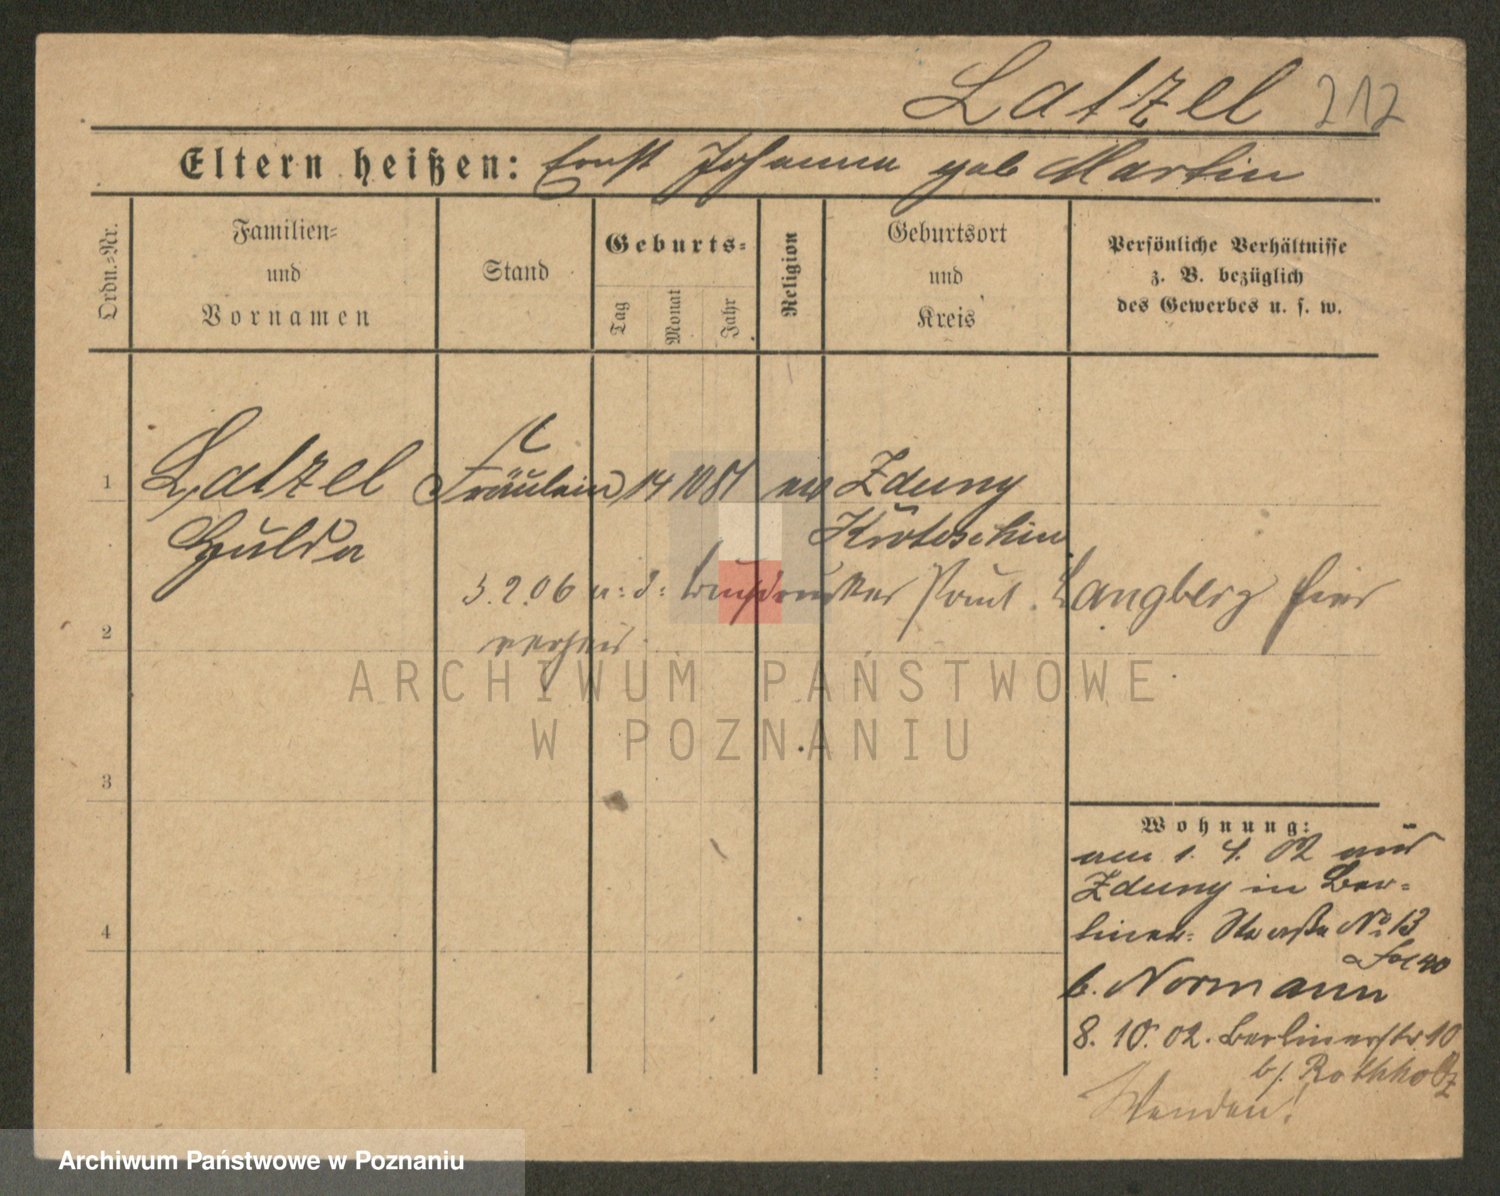 Latzel 212
Eltern heißen: Ernst Johanna geb Martin
Ordn.-Nr.
Familien-
und
Vornamen
Stand
Geburts-
Tag
Monat
Jahr
Religion
Geburtsort
und
Kreis
Persönliche Verhältnisse
z. B. bezüglich
des Gewerbes u. s. w.
1 Latzel Fräulein 14 10 81 ev Zduny
Hulda Krotoschin
3.2.06 m: d: Buchdrucker Paul Langberg hier
2 verheir
ARCHIWUM PAŃSTWOWE
W POZNANIU
3
Wohnung:
am 1. 4. 02 aus
Zduny in Ber-
4 liner- Straße No 13
b. Normann
8. 10. 02. Berlinerstr. 10
b/. Rothholz
Wenden!
Archiwum Państwowe w Poznaniu